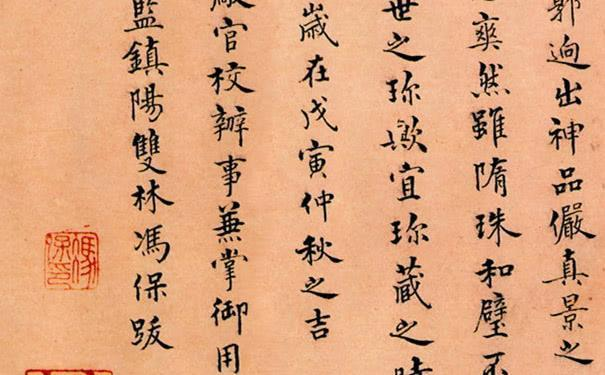 郭迥出神品儼真景之
爽然雖隋珠和璧不
世之珎歟宜珎藏之時
歲在戊寅仲秋之吉
廠官校辦事兼掌御用
監鎮陽雙林馮保跋